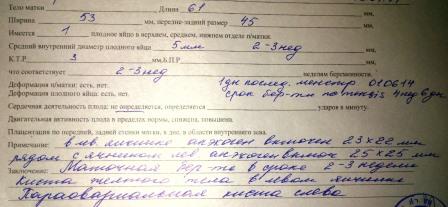 Тело матки Длина 61 мм,
Ширина 53 мм, передне-задний размер 45 мм.
Имеется 1 плодное яйцо в верхнем, среднем, нижнем отделе п/матки.
Средний внутренний диаметр плодного яйца 5 мм 2-3 нед
К.Т.Р. 3 мм.Б.П.Р. мм,
что соответствует 2-3 нед неделям беременности.
Деформация п/матки: есть, нет. 1 дн послед. менстр 010614
Деформация плодного яйца: есть, нет. срок бер-ти по menses 4 нед
Сердечная деятельность плода: не определяется, определяется ударов в минуту.
Двигательная активность плода в пределах нормы, снижена, повышена.
Плацентация по передней, задней стенки матки, в дне, в области внутреннего зева.
Примечание: в лев. яичнике анэхоген включен 23 x 22 мм
рядом с яичником лев. анэхоген включ 25 x 25 мм
Заключение: Маточная бер-ть в сроке 2-3 недели
Киста желтого тела в левом яичнике
Параовариальная киста слева